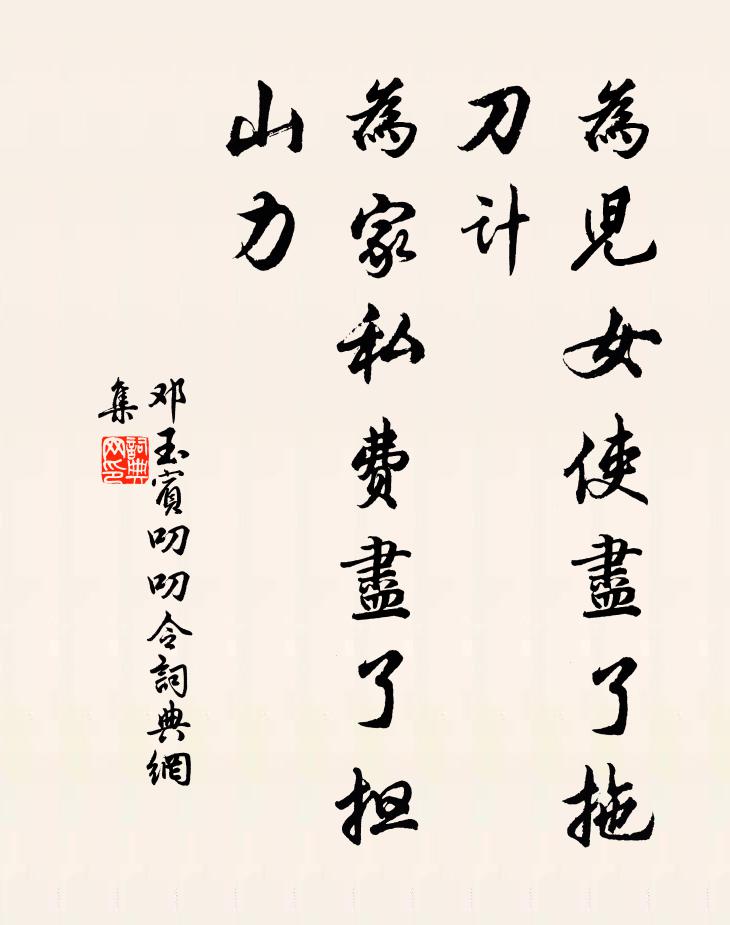 為兒女使盡了拖
刀计
為家私費盡了担
山力
邓玉賓叨叨令詞典網
集
詞典
网印